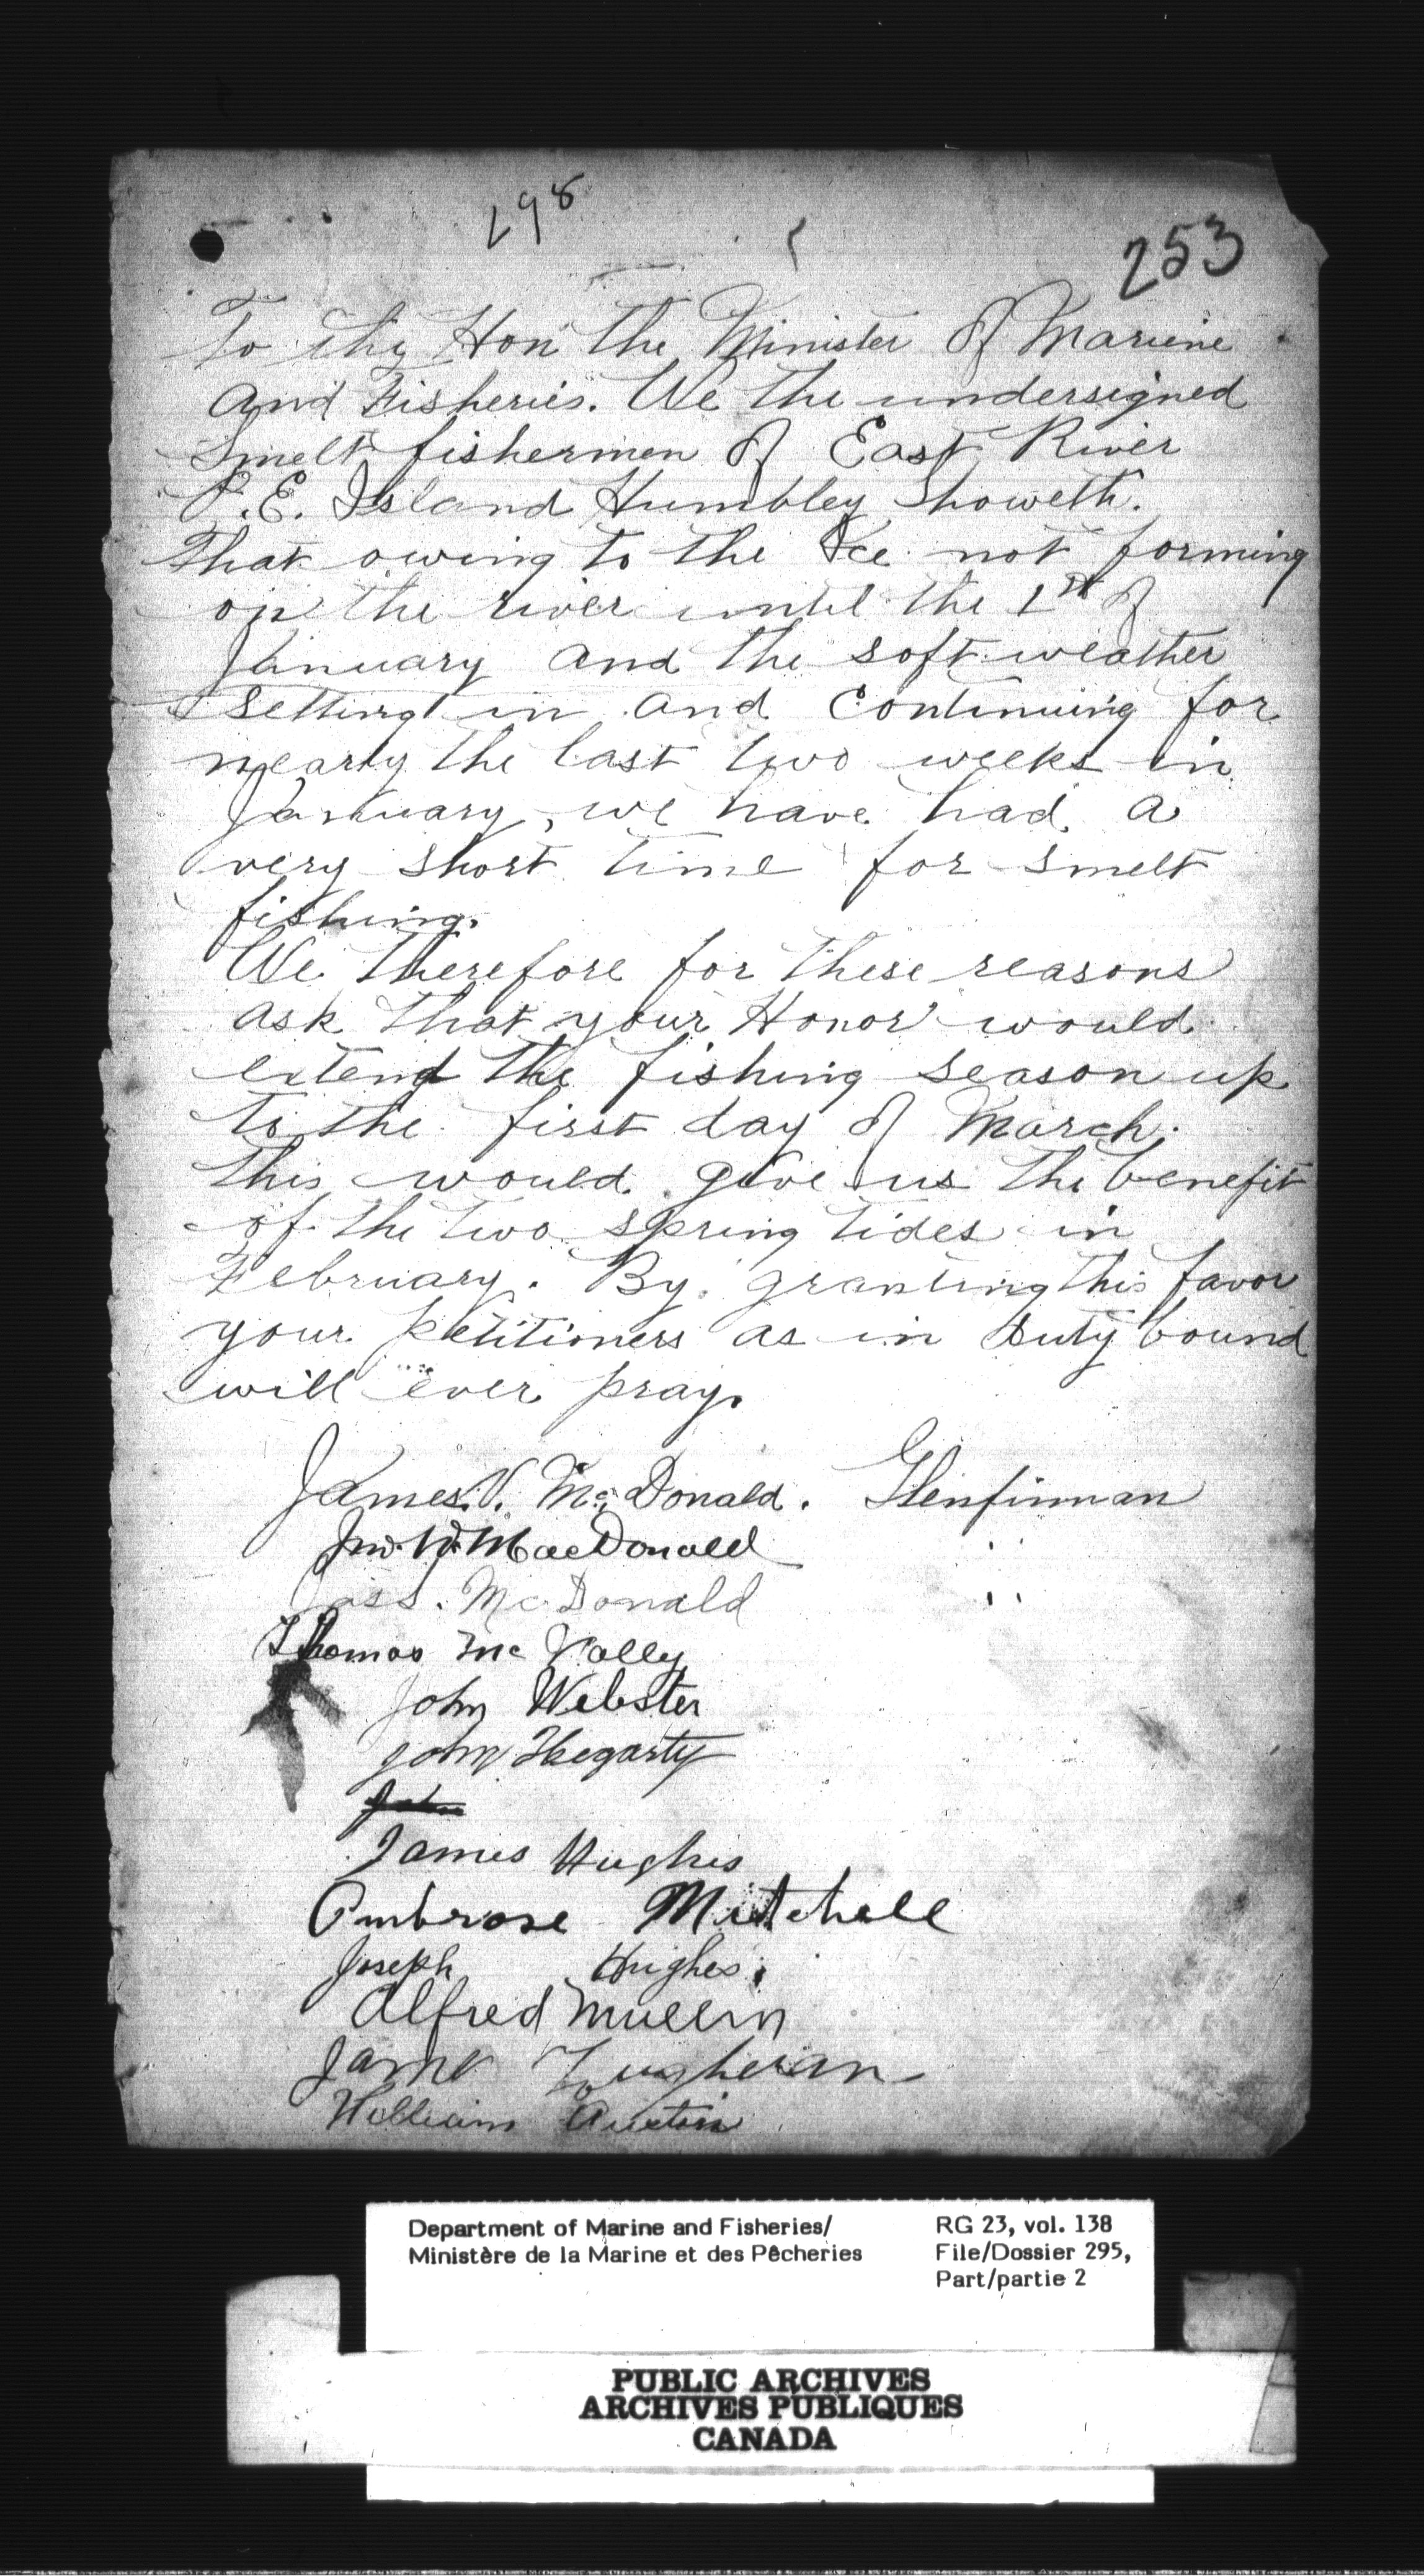 298
253
To the Hon the Minister of Mariene
and Fisheries. We the undersigned
Smelt fishermen of East River
P.E. Island Humbley Showeth.
That owing to the Ice not forming
on the river until the 1st of
January and the soft weather
setting in and continuing for
nearly the last two weeks in
January, we have had a
very short time for smelt
fishing.
We therefore for these reasons
ask that your Honor would
extend the fishing season up
to the first day of March.
This would give us the benefit
of the two spring tides in
February. By granting this favor
your petitioners as in duty bound
will ever pray.
James. V. McDonald. Glenfinnan
Jno. W. MacDonald " "
Jass. McDonald " "
Thomas Mc Nally
John Webster
John Hegarty
John
James Hughis
Ambrose Mitchell
Joseph Hughes.
Alfred Mullin
James Lougheran
William Austin
Department of Marine and Fisheries/ RG 23, vol. 138
Ministère de la Marine et des Pêcheries File/Dossier 295,
Part/partie 2
PUBLIC ARCHIVES
ARCHIVES PUBLIQUES
CANADA